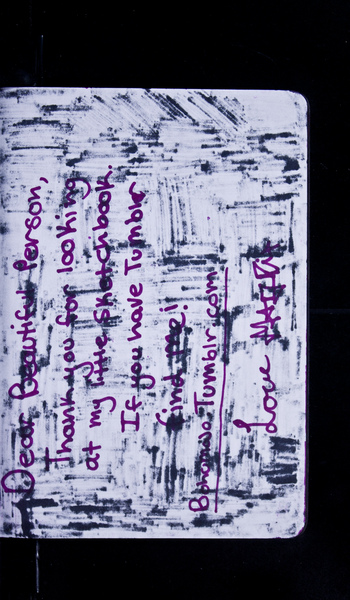 Dear Beautiful Person,
Thank you for looking
at my little Sketchbook.
If you have Tumblr
find me!
Tumblr.com
Love